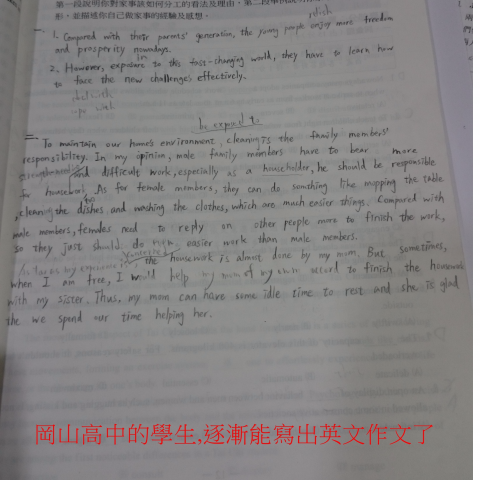 第一段說明你對家事該如何分工的看法及理由,第二段
形,並描述你自己做家事的經驗及感想。
relish
一、 1. Compared with their parents' generation, the young people enjoy more freedom
and prosperity nowadays.
in
2. However, exposure to this fast-changing world, they have to learn how
to face the new challenges effectively.
deal with
with
be exposed to
二、 To maintain our home's environment, cleaning is the family members'
responsibility. In my opinion, male family members have to bear more
and difficult work, especially as a householder, he should be responsible
for housework. As for female members, they can do somthing like mopping the table
, cleaning the dishes and washing the clothes, which are much easier things. Compared with
male members, females need to reply on other people more to finish the work,
so they just should do easier work than male members.
As far as my experience is concerned, the housework is almost done by my mom. But sometimes,
when I am free, I would help my mom of my own accord to finish the housework
with my sister. Thus, my mom can have some idle time to rest and she is glad
the we spend our time helping her.
岡山高中的學生,逐漸能寫出英文作文了